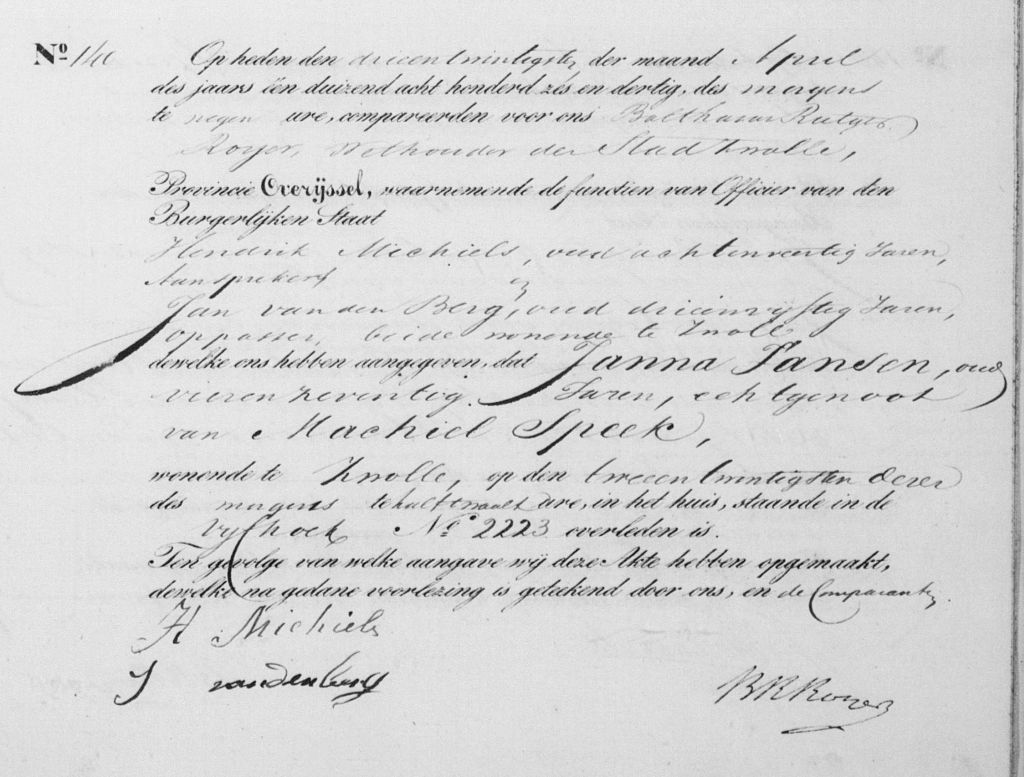 Nº 140 Op heden den drieentwintigsten der maand April
des jaars één duizend acht honderd zés en dertig, des morgens
te negen ure, compareerden voor ons Balthasar Rutger
Royer, Wethouder der Stad Zwolle,
Provincie Overijssel, waarnemende de functiën van Officier van den
Burgerlijken Staat
Hendrik Michiels, oud achtenveertig Jaren,
Aanspreker
en
Jan van den Berg, oud drieenvijftig Jaren,
oppasser, beide wonende te Zwolle
dewelke ons hebben aangegeven, dat Janna Jansen, oud
vierenzeventig Jaren, echtgenoot
van Machiel Speek,
wonende te Zwolle, op den tweeentwintigsten dezer
des morgens te half twaalf ure, in het huis, staande in de
Vyfhoek Nº 2223 overleden is.
Ten gevolge van welke aangave wij deze Akte hebben opgemaakt,
dewelke na gedane voorlezing is geteekend door ons, en de Comparanten.
H Michiels
J vandenberg
B R Royer